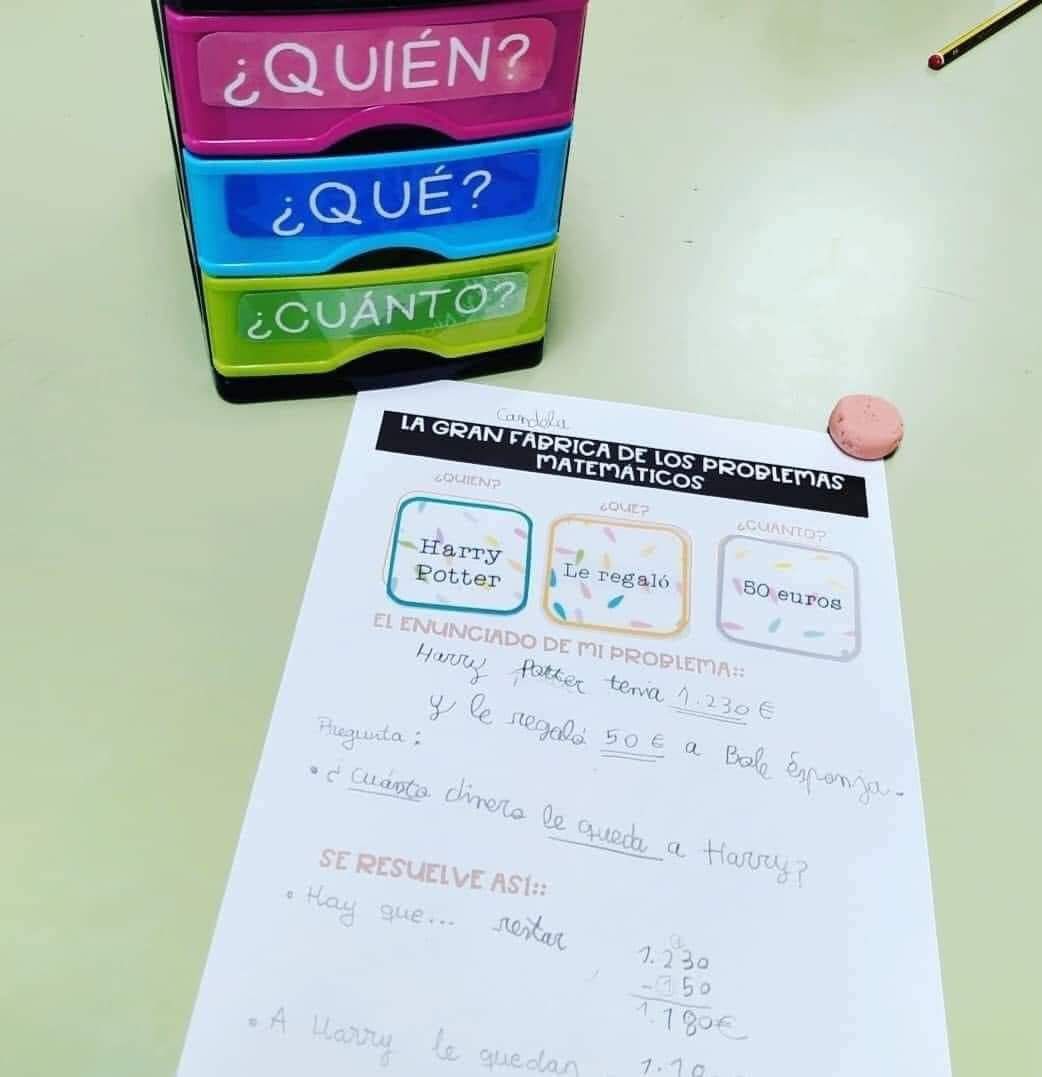 ¿QUIÉN?
¿QUÉ?
¿CUÁNTO?
LA GRAN FÁBRICA DE LOS PROBLEMAS
MATEMÁTICOS
¿QUIEN?
¿QUE?
¿CUANTO?
Harry
Potter
Le regaló
50 euros
EL ENUNCIADO DE MI PROBLEMA::
Harry Potter tenia 1.230€
y le regaló 50€ a Bob Esponja.
Pregunta:
• ¿Cuánto dinero le queda a Harry?
SE RESUELVE ASÍ::
• Hay que... restar
1.230
50
1.180€
• A Harry le quedan